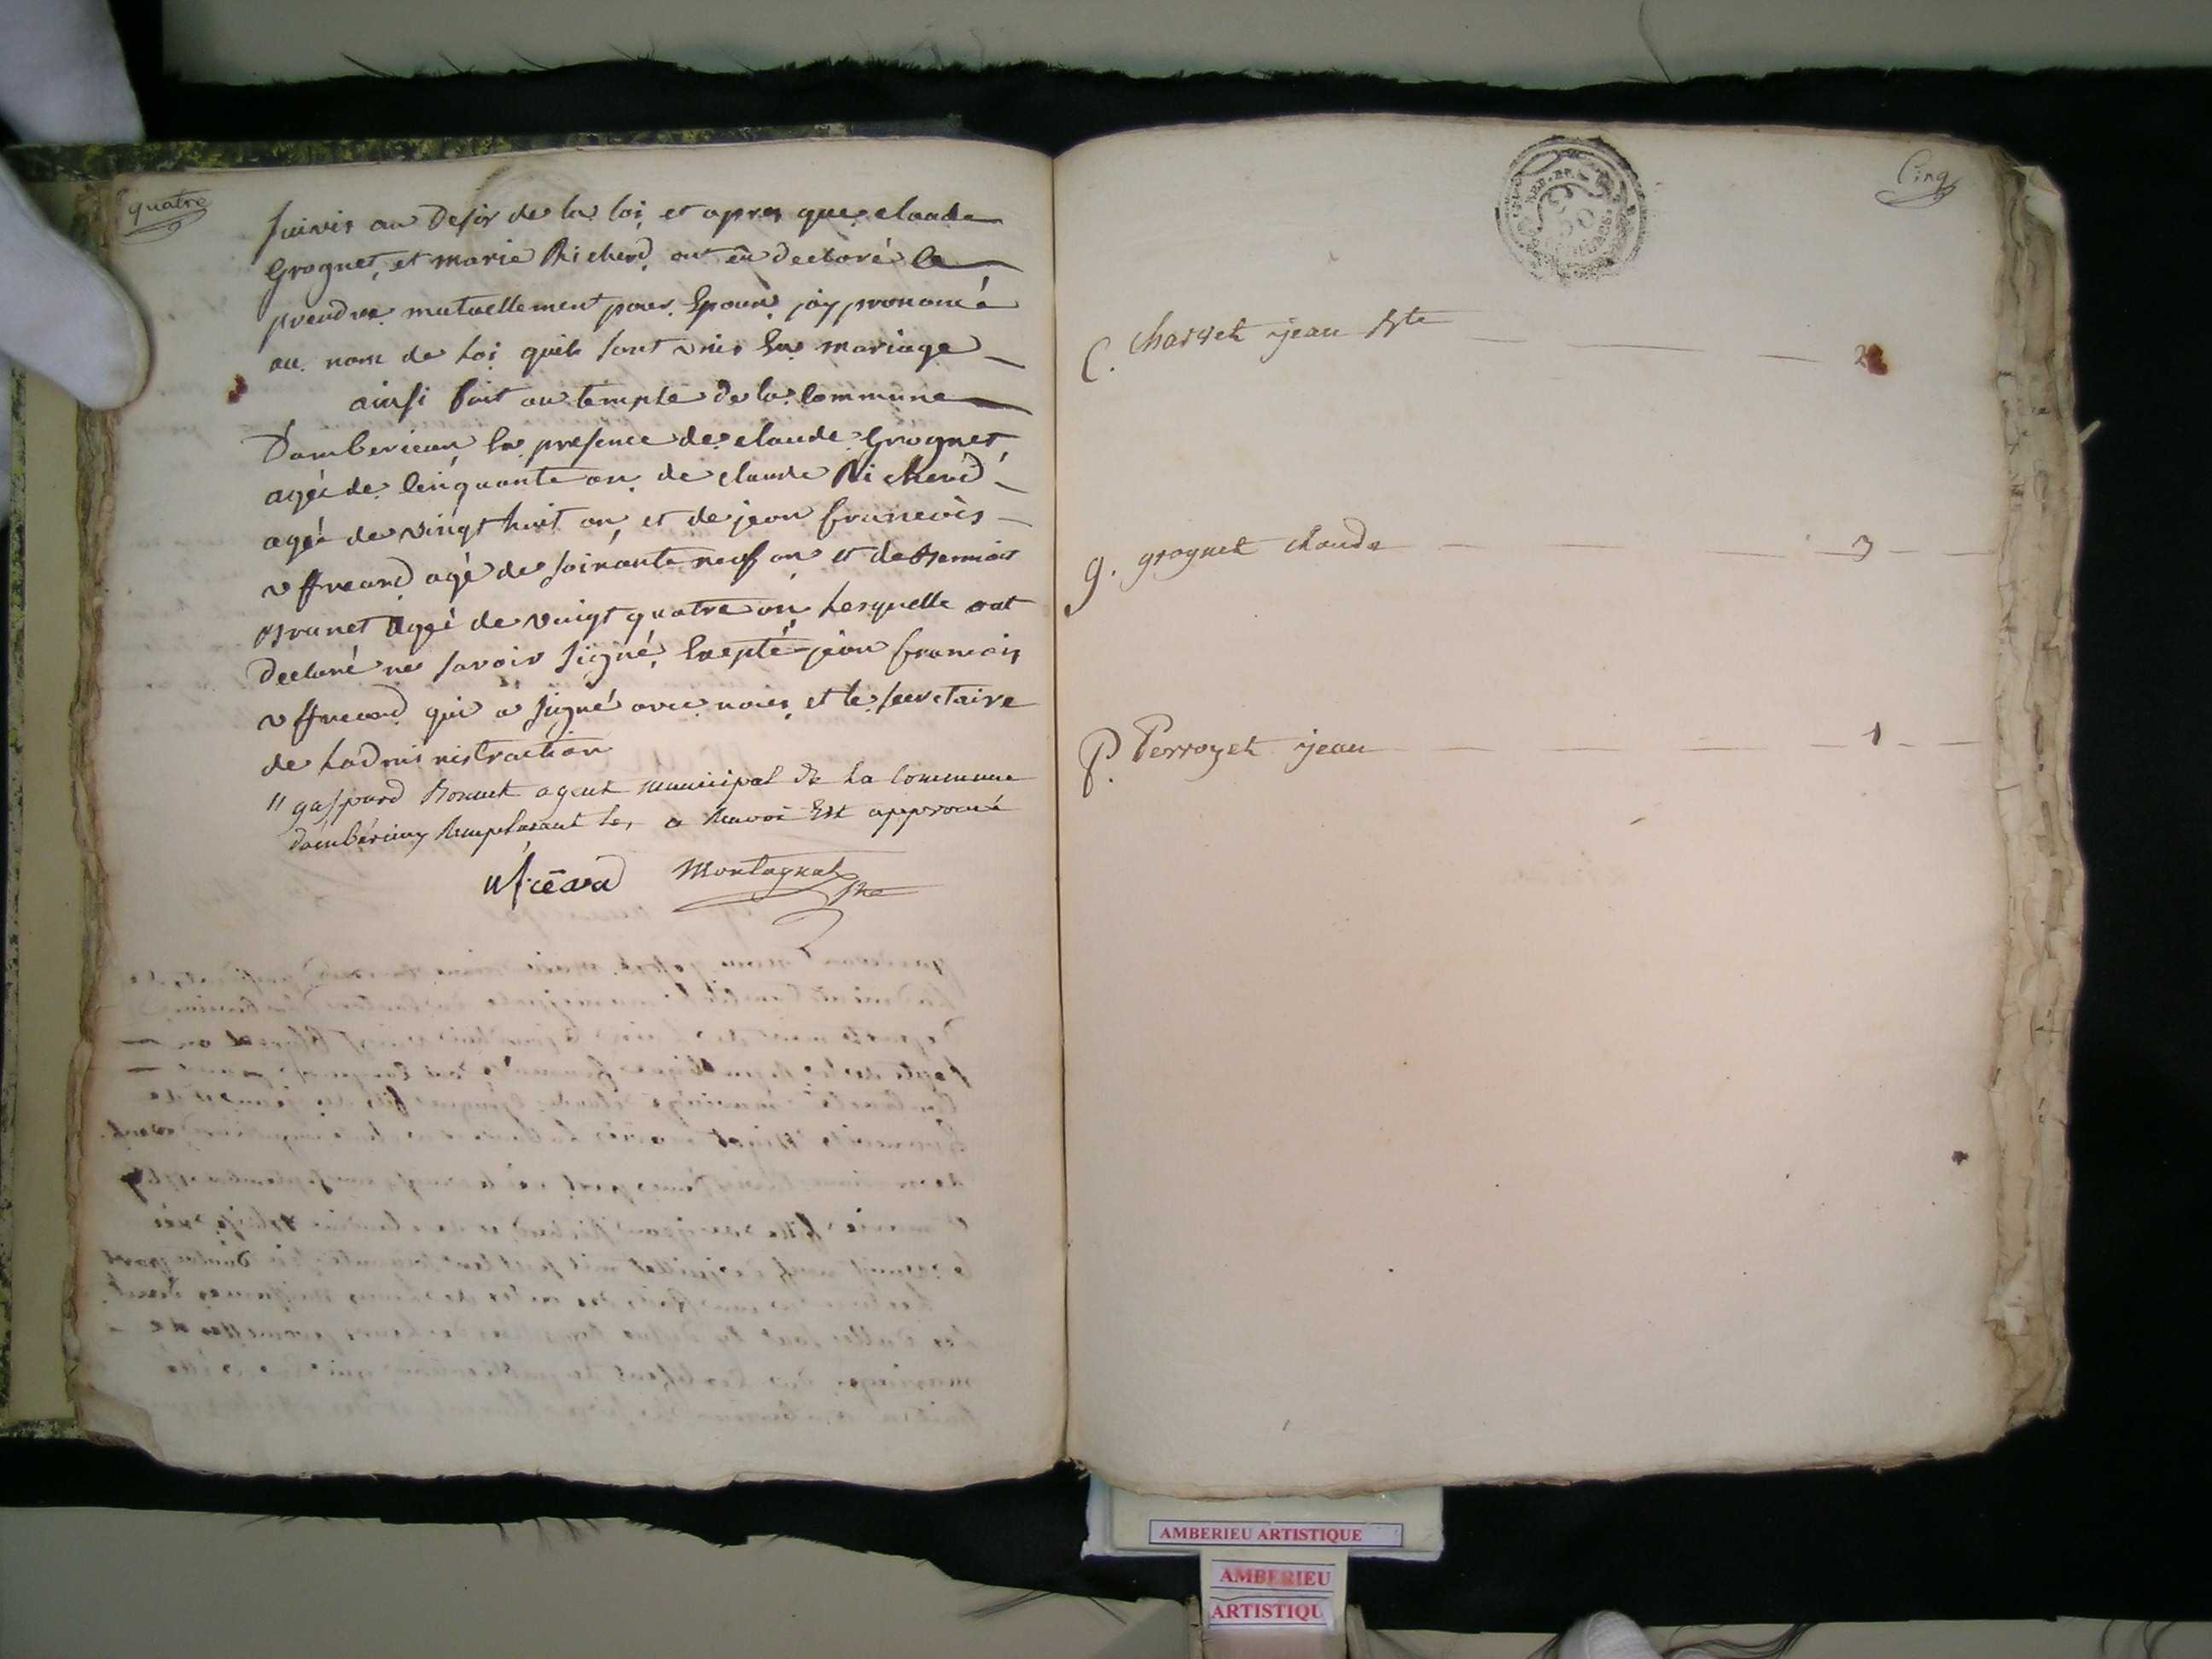 quatre
suivis au desir de la loi, et apres que claude
Grognet, et marie Richerd, ont eu declaré se
prendre mutuellement pour Epoux, jay prononcé
au nom de loi quils sont unis En mariage
ainsi fait au temple de la Commune
Damberieux En presence de claude Grognet,
agée de Cinquante an, de claude Richerd
agée de vingt huit an, et de jean francois
uffreard agé de soixante neuf an et de
Brunet agée de vingt quatre an, Lesquelle ont
declaré ne savoir signé, Exepté jean francois
uffreard qui a signé avec nous, et le secretaire
de Ladministraction
" gaspard Bonnet agent municipal de la Commune
dambérieux Remplasant le, a Renvoi Est approuvé
uffréard Montagnat
Cinq
C. Charvet jean Bte 2
g. grognet claude 3
P. Perrozet jean 1
AMBERIEU ARTISTIQUE
AMBERIEU
ARTISTIQU